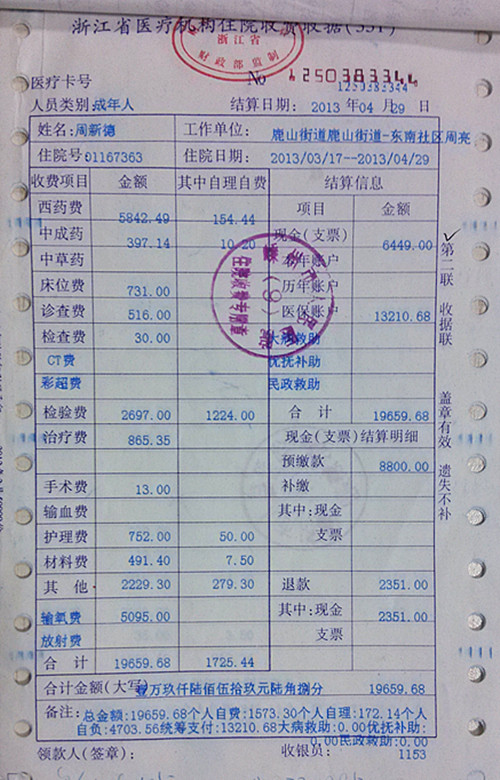 浙江省医疗机构住院收费收据(551)
浙江省
财政部监制
No 1250383344
1250383344
医疗卡号
人员类别:成年人 结算日期: 2013 年 04 月 29 日
姓名:周新德 工作单位: 鹿山街道鹿山街道-东南社区周亮
住院号:01167363 住院日期: 2013/03/17--2013/04/29
收费项目 金额 其中自理自费 结算信息
西药费 5842.49 154.44 项目 金额
中成药 397.14 10.20 现金(支票) 6449.00
中草药 本年账户
床位费 731.00 历年账户
诊查费 516.00 医保账户 13210.68
检查费 30.00 大病救助
CT费 优抚补助
彩超费 民政救助
检验费 2697.00 1224.00 合 计 19659.68
治疗费 865.35 现金(支票)结算明细
预缴款 8800.00
手术费 13.00 补缴
输血费 其中:现金
护理费 752.00 50.00 支票
材料费 491.40 7.50
其 他 2229.30 279.30 退款 2351.00
输氧费 5095.00 其中:现金 2351.00
放射费 支票
合 计 19659.68 1725.44
合计金额(大写)壹万玖仟陆佰伍拾玖元陆角捌分 19659.68
备注: 总金额:19659.68个人自费:1573.30个人自理:172.14个人
自负:4703.56统筹支付:13210.68大病救助:0.00优抚补助:
0.00民政救助:0.00
领款人(签章): 收银员: 1153
第二联 收据联 盖章有效 遗失不补